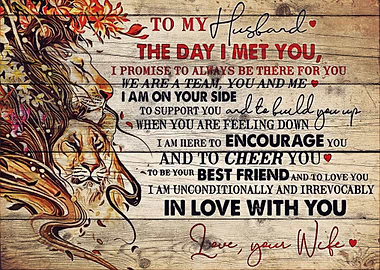 TO MY Husband
THE DAY I MET YOU,
I PROMISE TO ALWAYS BE THERE FOR YOU
WE ARE A TEAM, YOU AND ME
I AM ON YOUR SIDE
TO SUPPORT YOU and to build you up
WHEN YOU ARE FEELING DOWN
I AM HERE TO ENCOURAGE YOU
AND TO CHEER YOU
TO BE YOUR BEST FRIEND AND TO LOVE YOU
I AM UNCONDITIONALLY AND IRREVOCABLY
IN LOVE WITH YOU
Love, your Wife